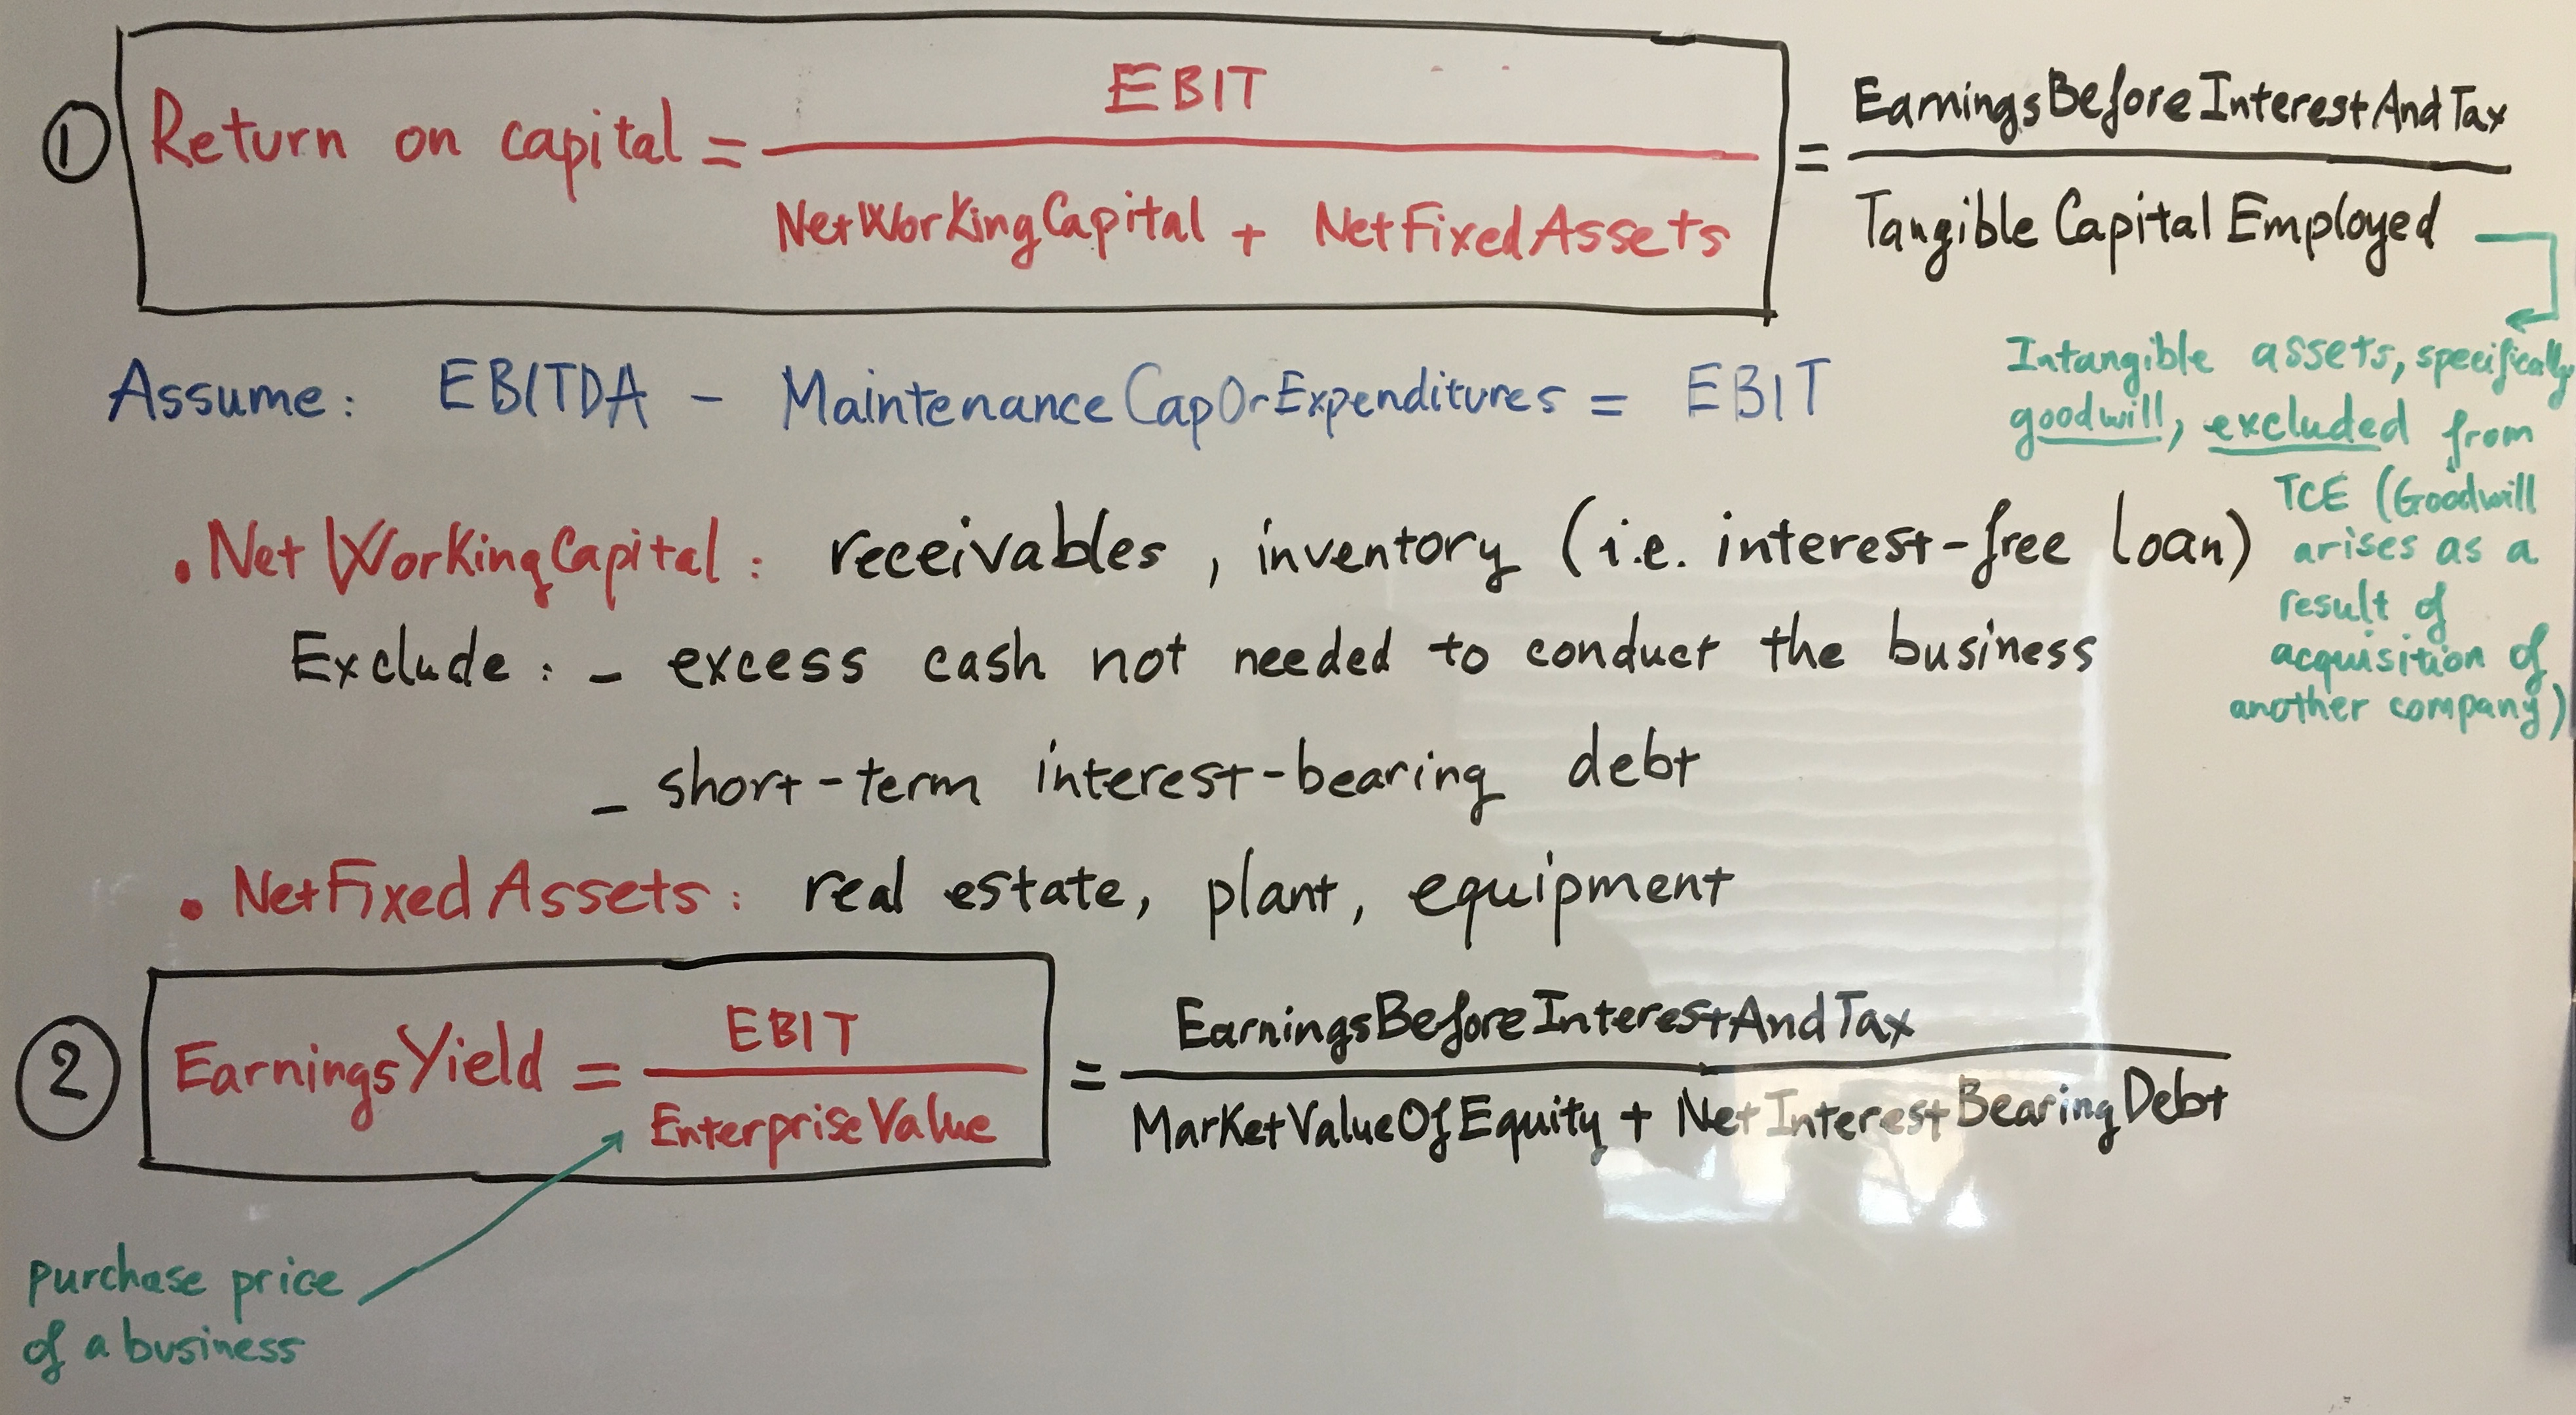 ① Return on capital = EBIT / NetWorkingCapital + NetFixedAssets = EarningsBeforeInterestAndTax / Tangible Capital Employed
Intangible assets, specifically
goodwill, excluded from
TCE (Goodwill
arises as a
result of
acquisition of
another company)
Assume: EBITDA - MaintenanceCapOrExpenditures = EBIT
• Net WorKingCapital: receivables, inventory (i.e. interest-free loan)
Exclude: - excess cash not needed to conduct the business
- short-term interest-bearing debt
• NetFixed Assets: real estate, plant, equipment
② EarningsYield = EBIT / EnterpriseValue = EarningsBeforeInterestAndTax / MarKetValueOfEquity + NetInterestBearingDebt
purchase price
of a business